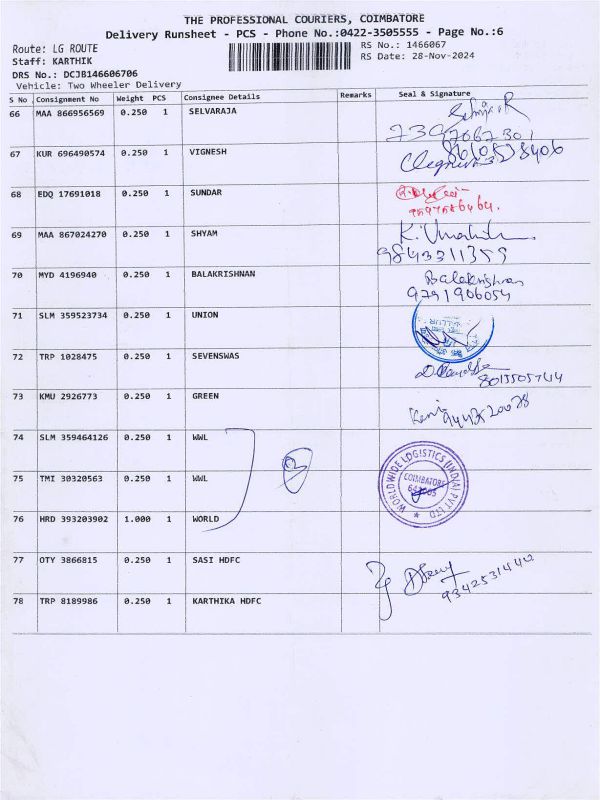 THE PROFESSIONAL COURIERS, COIMBATORE
Delivery Runsheet - PCS - Phone No.:0422-3505555 - Page No.:6
Route: LG ROUTE
RS No.: 1466067
Staff: KARTHIK
RS Date: 28-Nov-2024
DRS No.: DCJB146606706
Vehicle: Two Wheeler Delivery
S No Consignment No Weight PCS Consignee Details Remarks Seal & Signature
66 MAA 866956569 0.250 1 SELVARAJA
67 KUR 696490574 0.250 1 VIGNESH
68 EDQ 17691018 0.250 1 SUNDAR
69 MAA 867024270 0.250 1 SHYAM
9843311359
70 MYD 4196940 0.250 1 BALAKRISHNAN Balakrishnan
9791906054
71 SLM 359523734 0.250 1 UNION
72 TRP 1028475 0.250 1 SEVENSWAS
73 KMU 2926773 0.250 1 GREEN
74 SLM 359464126 0.250 1 WWL
75 TMI 30320563 0.250 1 WWL
WORLDWIDE LOGISTICS (INDIA) PVT LTD
COIMBATORE
76 HRD 393203902 1.000 1 WORLD
77 OTY 3866815 0.250 1 SASI HDFC
9342531440
78 TRP 8189986 0.250 1 KARTHIKA HDFC